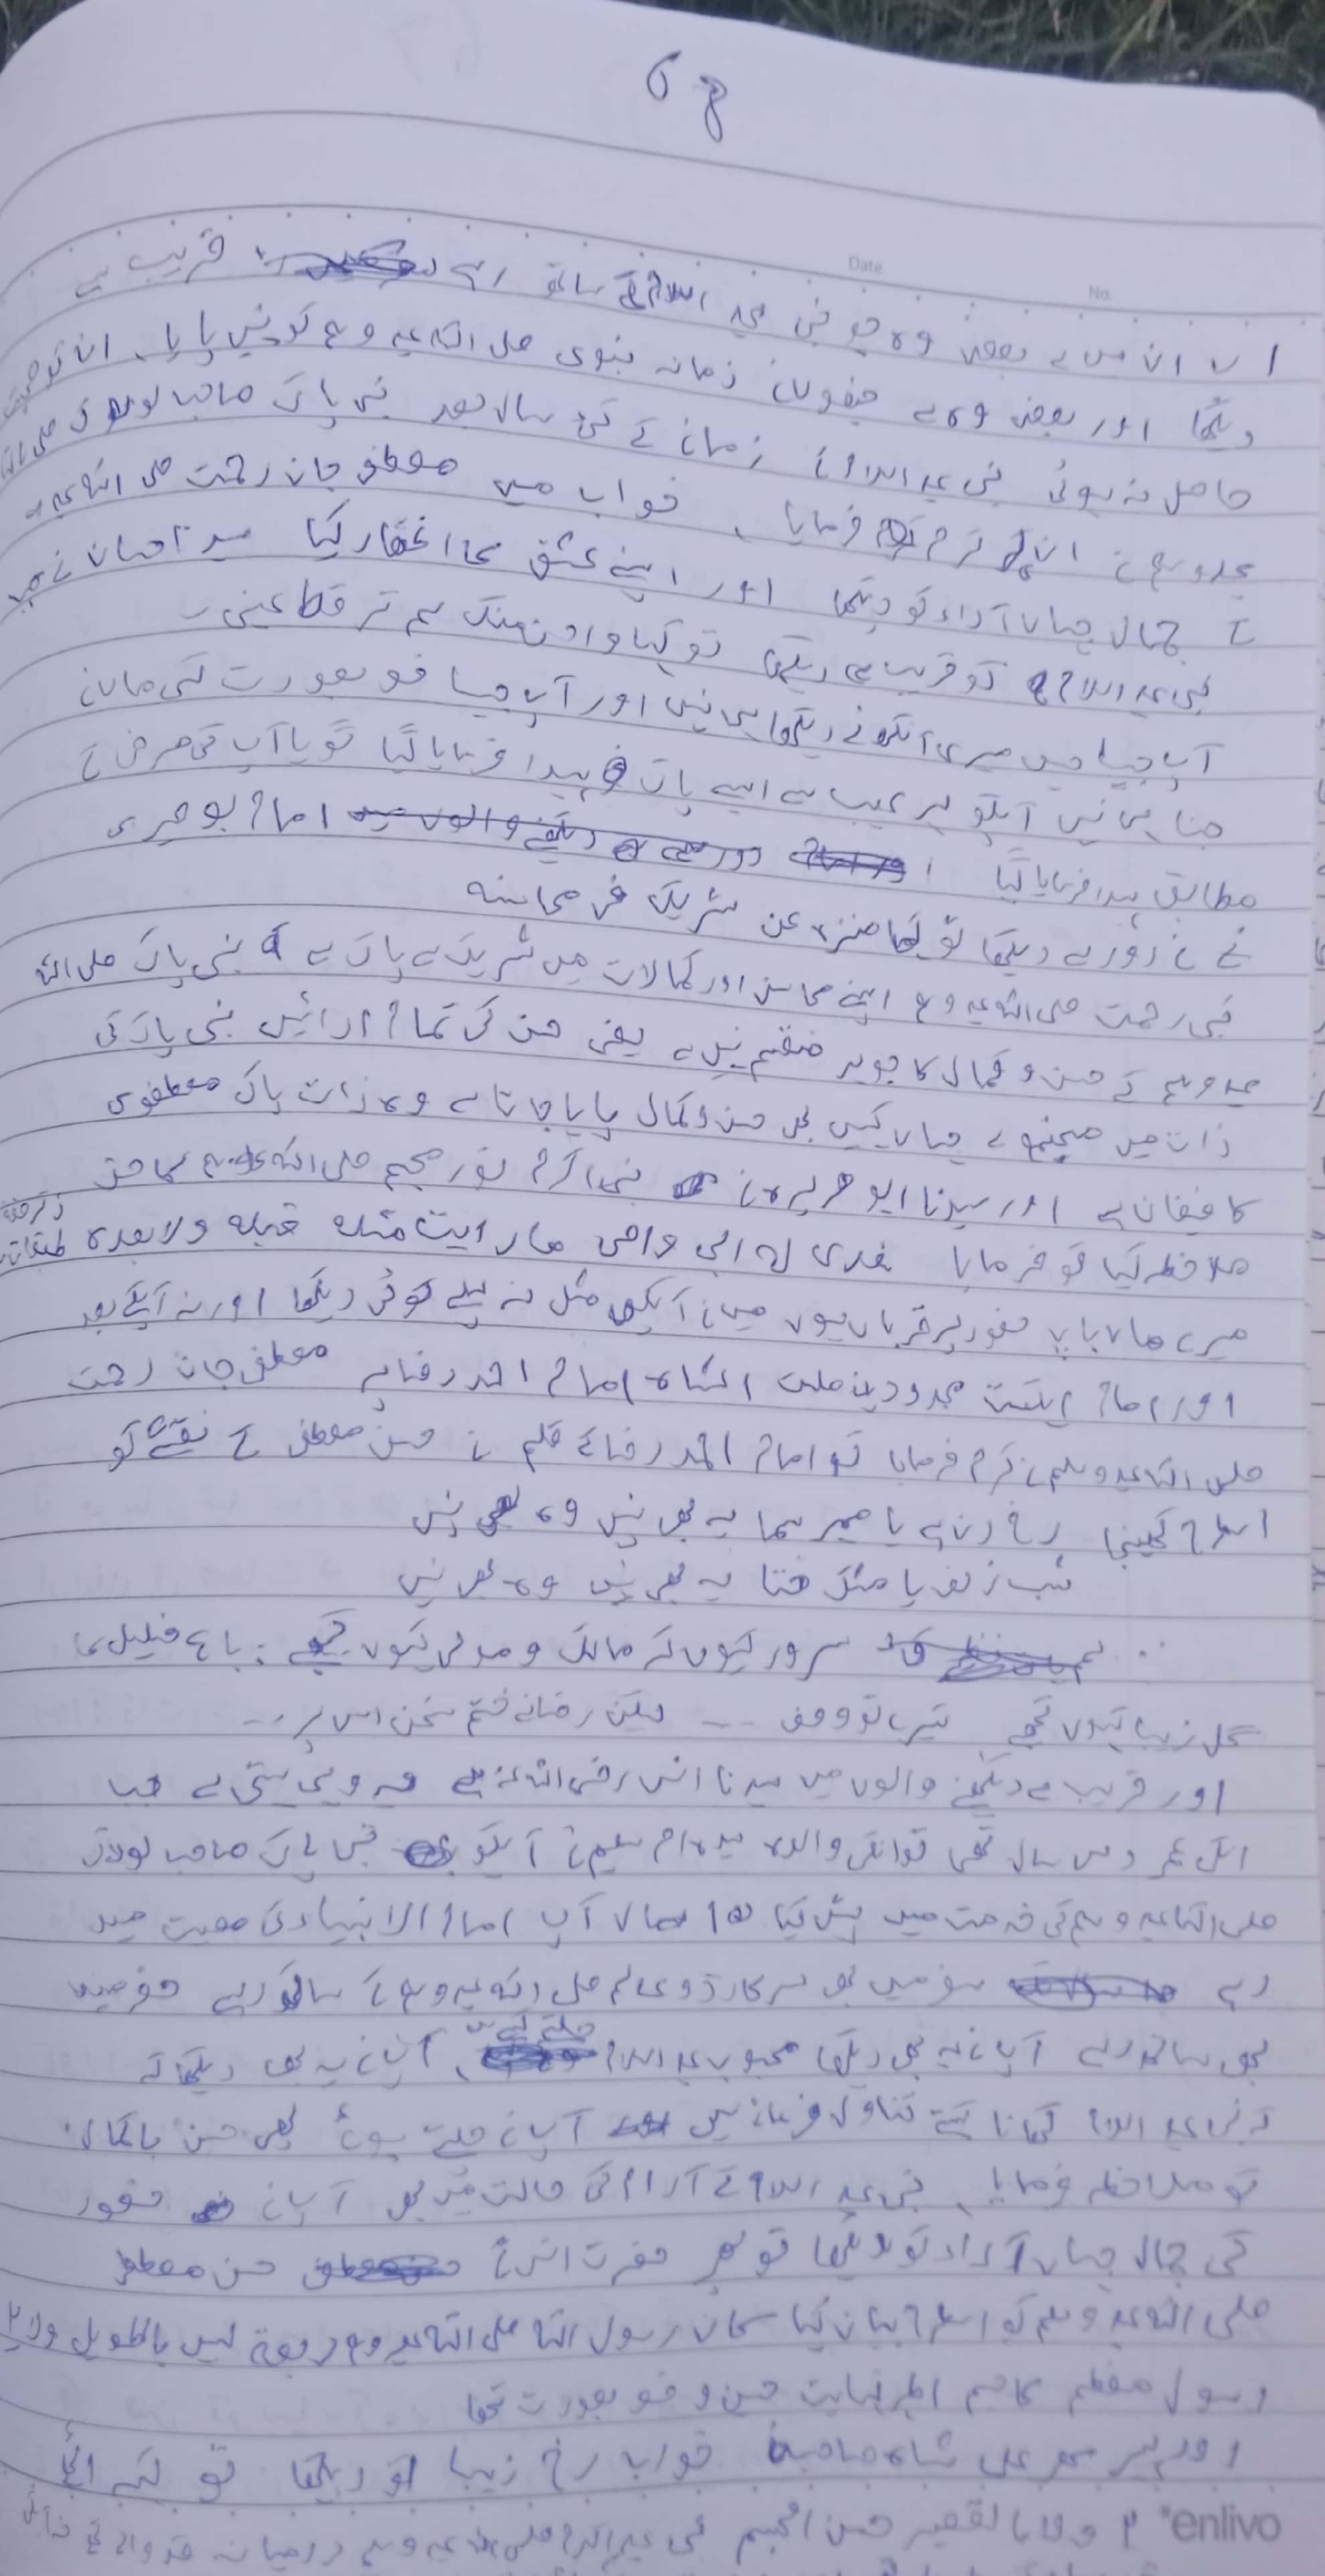 68
Date
No.
اب ان میں سے بعض وہ جو نبی علیہ السلام کے ساتھ رہے قریب سے
دیکھا اور بعض وہ ہے جنہوں نے زمانہ نبوی صلی اللہ علیہ وسلم کو نہیں پایا ان کو
حاصل نہ ہوئی نبی علیہ السلام زمانے کے کئی سال بعد نبی پاک صاحب لولاک صلی اللہ
علیہ وسلم نے ان پر کرم فرمایا خواب میں مصطفی جان رحمت صلی اللہ علیہ
کے جمال جہاں آراء کو دیکھا اور اپنے عشق کا اظہار کیا سیدنا حسان نے جب
نبی علیہ السلام کو قریب سے دیکھا تو کہا واحسن منک لم تر قط عینی
آپ جیسا حسین میری آنکھ نے دیکھا ہی نہیں اور آپ جیسا خوبصورت کسی ماں نے
جنا ہی نہیں آپکو ہر عیب سے ایسے پاک پیدا فرمایا گیا گویا آپ کی مرضی کے
مطابق پیدا فرمایا گیا امام بوصیری
نے دور سے دیکھا تو کہا منزہ عن شریک فی محاسنہ
نبی رحمت صلی اللہ علیہ وسلم اپنے محاسن اور کمالات میں شریک سے پاک ہے نبی پاک صلی اللہ
علیہ وسلم کے حسن و کمال کا جوہر منقسم نہیں ہے یعنی حسن کی تمام ادائیں نبی پاک کی
ذات میں ہے جہاں کہیں بھی حسن و کمال پایا جاتا ہے وہ ذات پاک مصطفوی
کا فیضان ہے اور سیدنا ابو ہریرہ نے نبی اکرم نور مجسم صلی اللہ علیہ وسلم کا حسن
ملاحظہ کیا تو فرمایا فدی لہ ابی وامی مار ایت مثلہ قبلہ ولا بعدہ طبقات
میرے ماں باپ حضور پر قربان ہوں میں نے آپکی مثل نہ پہلے کوئی دیکھا اور نہ آپکے بعد
اور امام اہلسنت مجدد دین ملت الشاہ امام احمد رضا پہ مصطفی جان رحمت
صلی اللہ علیہ وسلم نے کرم فرمایا تو امام احمد رضا کے قلم نے حسن مصطفی کے نقشے کو
اسطرح کھینچا رخ دن ہے یا مہر سما یہ بھی نہیں وہ بھی نہیں
شب زلف یا مشک ختا یہ بھی نہیں وہ بھی نہیں
سرور کہوں کہ مالک و مولی کہوں تجھے : باغ خلیل کا
گل زیبا کہوں تجھے تیرے تو وصف -- لیکن رضا نے ختم سخن اس پر --
اور قریب سے دیکھنے والوں میں سیدنا انس رضی اللہ عنہ ہے یہ وہی ہستی ہے جب
انکی عمر دس سال تھی تو انکی والدہ سیدہ ام سلیم نے آپکو نبی پاک صاحب لولاک
صلی اللہ علیہ وسلم کی خدمت میں پیش کیا 10 سال آپ امام الانبیاء کی معیت میں
رہے سفر میں بھی سرکار دو عالم صلی اللہ علیہ وسلم کے ساتھ رہے حضر میں
بھی ساتھ رہے آپ نے یہ بھی دیکھا محبوب علیہ السلام چلتے کیسے ہیں آپ نے یہ بھی دیکھا کہ
کہ نبی علیہ السلام کھانا کیسے تناول فرماتے ہیں آپ نے چلتے ہوئے بھی حسن باکمال
کو ملاحظہ فرمایا نبی علیہ السلام کے آرام کی حالت میں بھی آپ نے حضور
کی جمال جہاں آراء کو دیکھا تو پھر حضرت انس نے حسن مصطفی
صلی اللہ علیہ وسلم کو اسطرح بیان کیا کان رسول اللہ صلی اللہ علیہ وسلم ربعۃ لیس بالطویل ولا
رسول معظم کا جسم اطہر نہایت حسین و خوبصورت تھا
اور پیر مہر علی شاہ صاحب خواب رخ زیبا کو دیکھا تو کہہ اٹھے
ولا بالقصیر حسن الجسم نبی علیہ السلام صلی اللہ علیہ وسلم درمیانہ قد والے تھے
enlivo